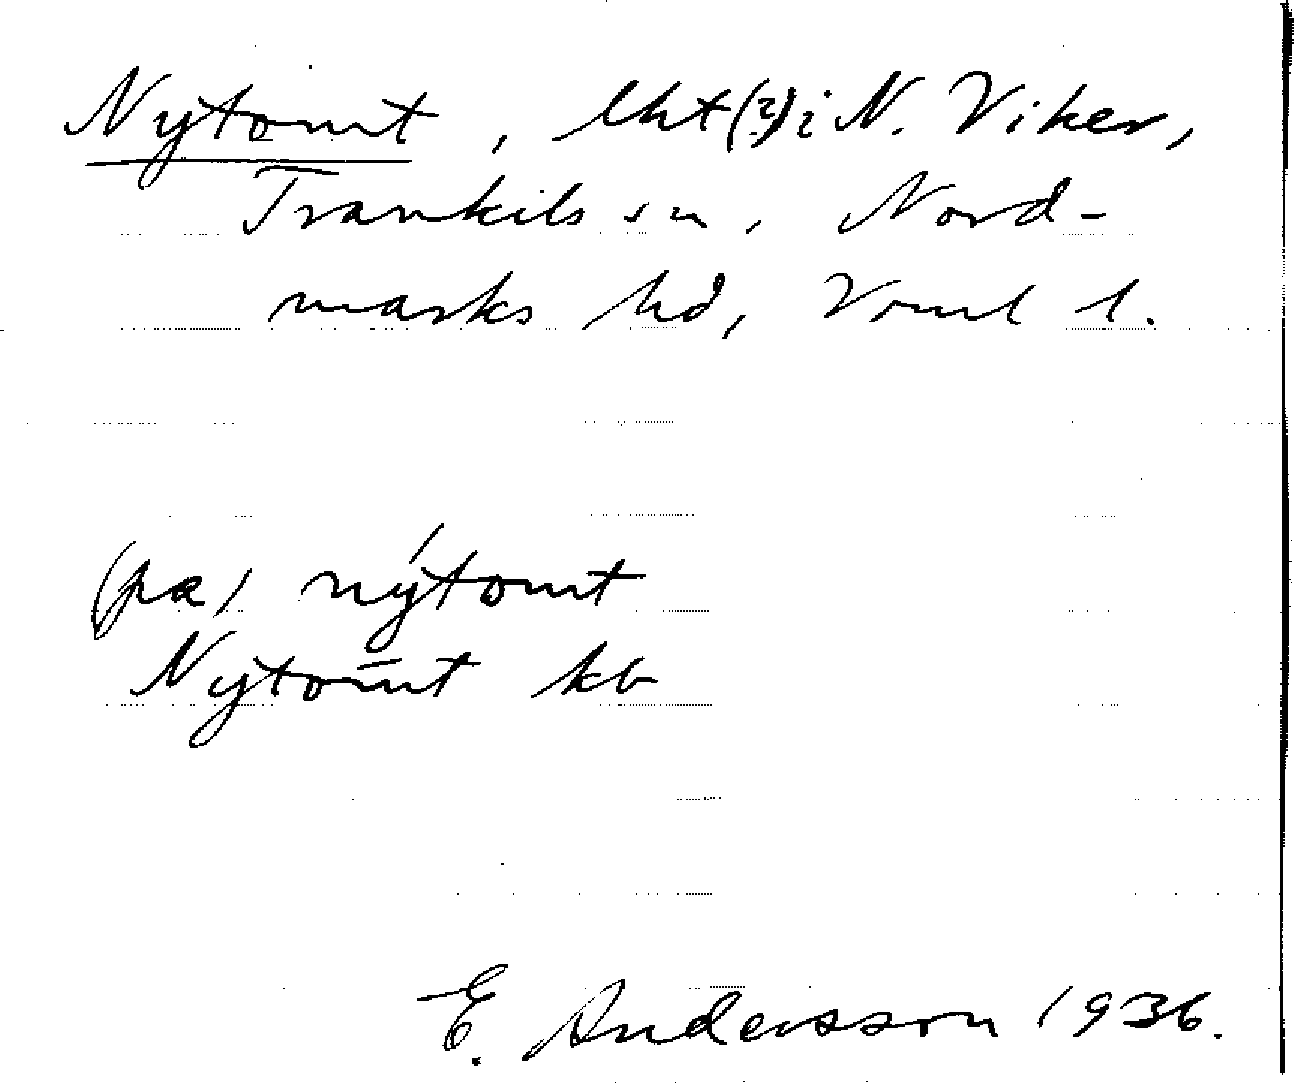 Nytomt, lht(?) i N. Viker,
Trankils sn, Nord-
marks hd, Vrml l.
(pa) nýtomt
Nytom̄t kb
E. Andersson 1936.